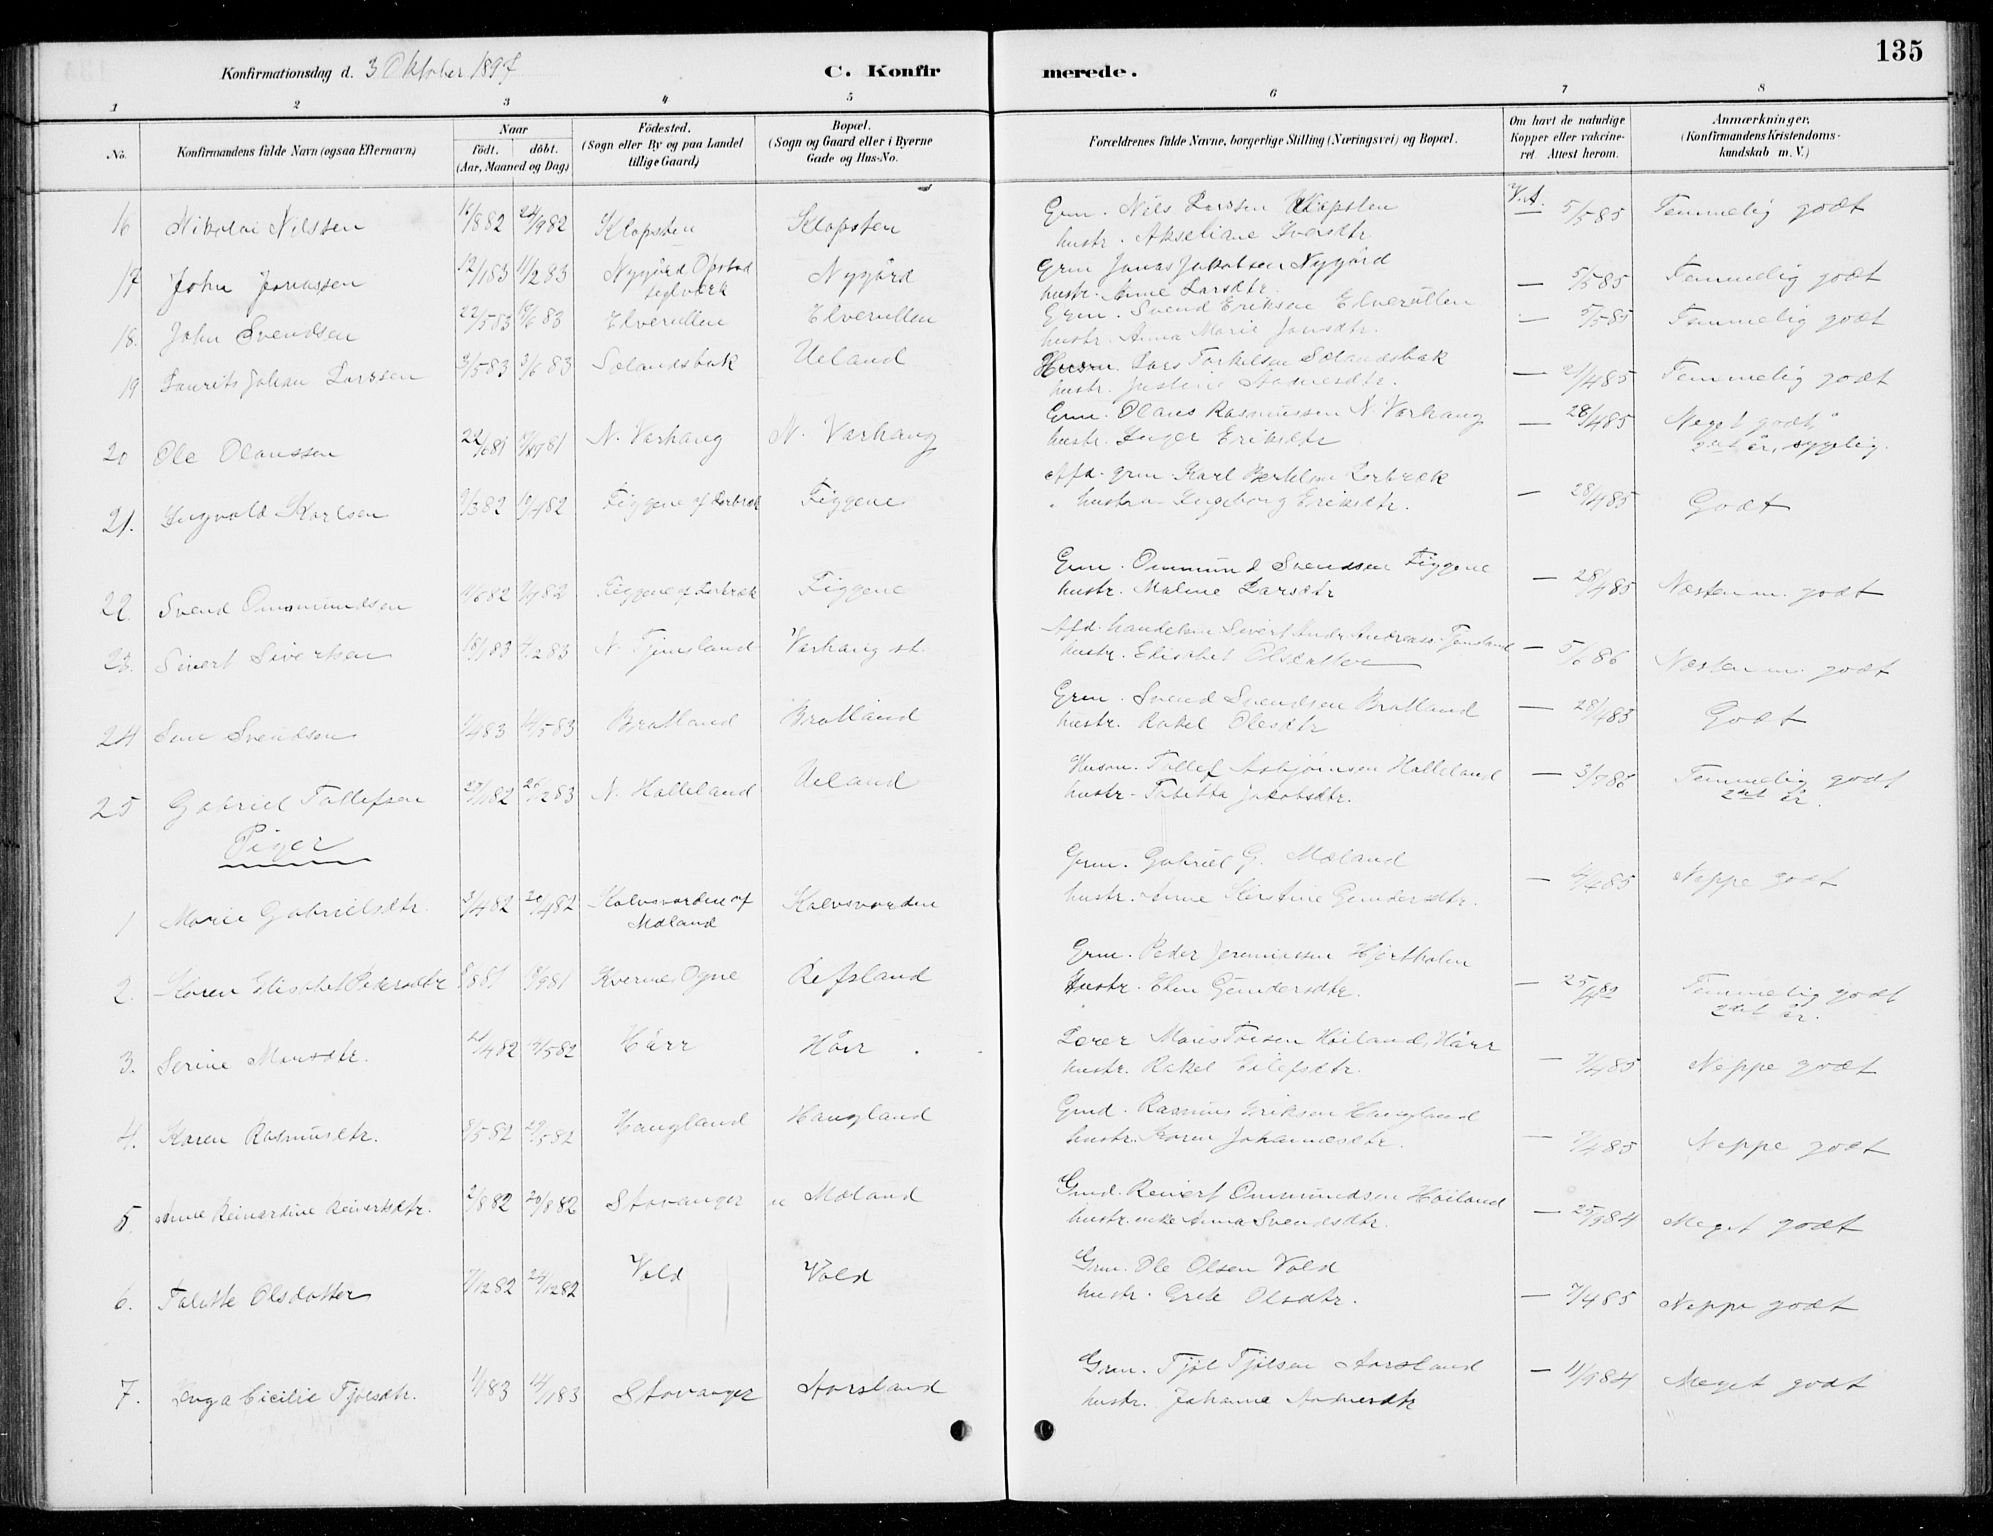 Konfirmationsdag d. 3 Oktober 1897
C. Konfirmerede.
135
1 2 3 4 5 6 7 8
No.
Konfirmandens fulde Navn (ogsaa Efternavn)
Naar
født. døbt.
(Aar, Maaned og Dag)
Fødested.
(Sogn eller By og paa Landet
tillige Gaard)
Bopæl.
(Sogn og Gaard eller i Byerne
Gade og Hus-No.
Forældrenes fulde Navne, borgerlige Stilling (Næringsvei) og Bopæl.
Om havt de naturlige
Kopper eller vakcine-
ret. Attest herom.
Anmærkninger.
(Konfirmandens Kristendoms-
kundskab m. V.)
16 Nikolai Nilssen 16/8 82 24/9 82 Klopsten Klopsten Grm. Nils Larssen Klopsten V.A. 5/5 85 Temmelig godt
hustr. Akseliane Iversdtr.
17 John Jonassen 12/1 83 11/2 83 Nygård Opstad Nygård Grm Jonas Jakobsen Nygård — 5/5 85 Temmelig godt
teglværk hustr. Anne Larsdtr.
18. John Svendsen 22/5 83 10/6 83 Elverullen Elverullen Grm. Svend Eriksen Elverullen — 5/5 85 Temmelig godt
hustr. Anna Marie Jonsdtr.
19 Laurits Johan Larssen 3/5 83 3/6 83 Sælandsbak Ueland Husm. Lars Torkelsen Sælandsbak — 21/4 85 Temmelig godt
hustr. Justine Aadnesdtr.
20 Ole Olaussen 22/6 81 N. Varhaug N. Varhaug Grm. Olaus Rasmussen N. Varhaug — 28/4 85 Meget godt
hustr. Inger Eriksdtr 2det år, sygelig.
21. Ingvald Karlsen 9/3 82 10/4 82 Tiggene af Lerbræk Tiggene Afd. grm. Karl Bertelsen Lerbræk — 28/4 85 Godt
hustru Ingeborg Eriksdtr.
22. Svend Ommundsen Tiggene af Lerbræk Tiggene Grm. Ommund Svendsen Tiggene — 28/4 85 Næsten m. godt
hustr. Maline Larsdtr
23. Sivert Sivertsen 18/1 83 4/2 83 N. Tjemsland Varhaug st. Afd. handelsm Sivert Andr. Andreass. Tjemsland — 5/6 86 Næsten m. godt
hustr. Elisabet Olsdatter
24 Sem Svendsen 1/4 83 14/5 83 Bratland Bratland Grm. Svend Svendsen Bratland — 28/4 85 Godt
hustr. Rakel Olesdtr
25 Gabriel Tollefsen 27/11 82 26/2 83 N. Hølleland Ueland Husm. Tollef Asbjørnsen Hølleland — 3/7 86 Temmelig godt
hustr. Tabitta Jakobsdtr. 2det år.
Piger
1 Marie Gabrielsdtr. 3/4 82 20/4 82 Kalvsvarden af Kalvsvarden Grm. Gabriel G. Mæland — 21/4 85 Neppe godt
Mæland hustr. Anne Kirstine Gundersdtr.
2. Karen Elisabet Pedersdtr 8/8 81 18/9 81 Kverme, Ogne Refsland Grm. Peder Jeremiassen Hjertholen — 25/4 82 Temmelig godt
Hustr. Elen Gundersdtr. 2det år.
3. Serine Monsdtr. 21/4 82 Hårr Hårr Lærer Mons Toresen Høiland, Hårr — 7/4 85 Neppe godt
hustr. Rakel Eilefsdtr.
4. Karen Rasmusdtr. 8/5 82 29/5 82 Haugland Haugland Gmd. Rasmus Eriksen Haugland — 7/4 85 Neppe godt
hustr. Karen Johannesdtr.
5. Anne Reinertine Reinertsdtr. 2/8 82 20/8 82 Stavanger Mæland Gmd. Reinert Ommundsen Høiland — 25/9 84 Meget godt
hustr. enke Anna Svendsdtr.
6. Talette Olsdatter 7/12 82 24/12 82 Vold Vold Grm. Ole Olsen Vold — 7/4 85 Neppe godt
hustr. Grete Olsdtr.
7. Inga Cicilie Tjølsdtr. 1/1 83 14/1 83 Stavanger Aarsland Grm. Tjøl Tjølsen Aarsland — 11/9 84 Meget godt
hustr. Johanne Aadnesdtr